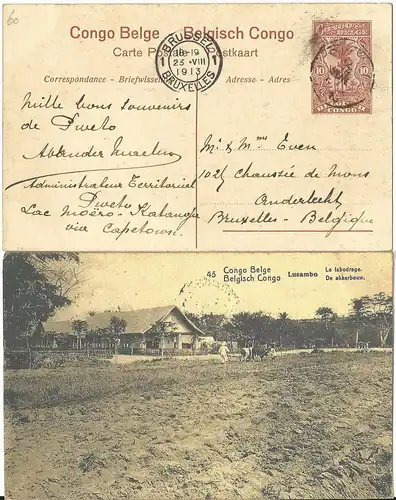 60
Congo Belge – Belgisch Congo
Carte Postale Postkaart
Correspondance - Briefwissel Adresse - Adres
BRUSSEL
18-19
23 -VIII
1913
BRUXELLES
1 1
CONGO
BELGE
10 10
CONGO
Mille bons souvenirs
de Pweto
Administrateur Territorial
Pweto
Lac Moëro - Katanga
via Capetown.
Mr & Mme Even
Chaussée de Mons
Anderlecht
Bruxelles - Belgique
45 Congo Belge
Belgisch Congo Lusambo
Le labourage.
De akkerbouw.